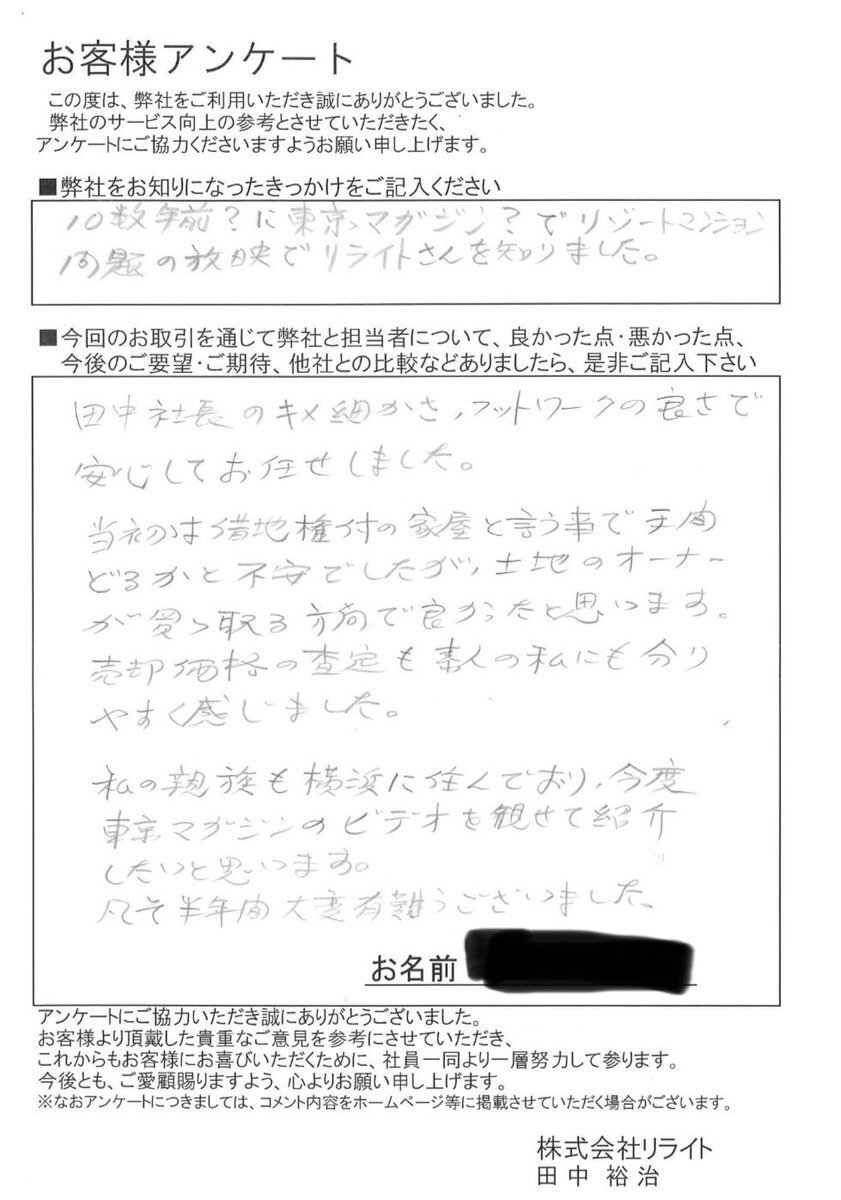 お客様アンケート
この度は、弊社をご利用いただき誠にありがとうございました。
弊社のサービス向上の参考とさせていただきたく、
アンケートにご協力くださいますようお願い申し上げます。
■弊社をお知りになったきっかけをご記入ください
10数年前?に東京マガジン?でリゾートマンション
問題の放映でリライトさんを知りました。
■今回のお取引を通じて弊社と担当者について、良かった点・悪かった点、
今後のご要望・ご期待、他社との比較などありましたら、是非ご記入下さい
田中社長のキメ細かさ、フットワークの良さで
安心してお任せしました。
当初は借地権付の家屋と言う事で手間
どるかと不安でしたが、土地のオーナー
が買っ取る方向で良かったと思います。
売却価格の査定も素人の私にも分り
やすく感じました。
私の親族も横浜に住んでおり、今度
東京マガジンのビデオを観せて紹介
したいと思います。
凡そ半年間大変有難うございました。
お名前
アンケートにご協力いただき誠にありがとうございました。
お客様より頂戴した貴重なご意見を参考にさせていただき、
これからもお客様にお喜びいただくために、社員一同より一層努力して参ります。
今後とも、ご愛顧賜りますよう、心よりお願い申し上げます。
※なおアンケートにつきましては、コメント内容をホームページ等に掲載させていただく場合がございます。
株式会社リライト
田中 裕治